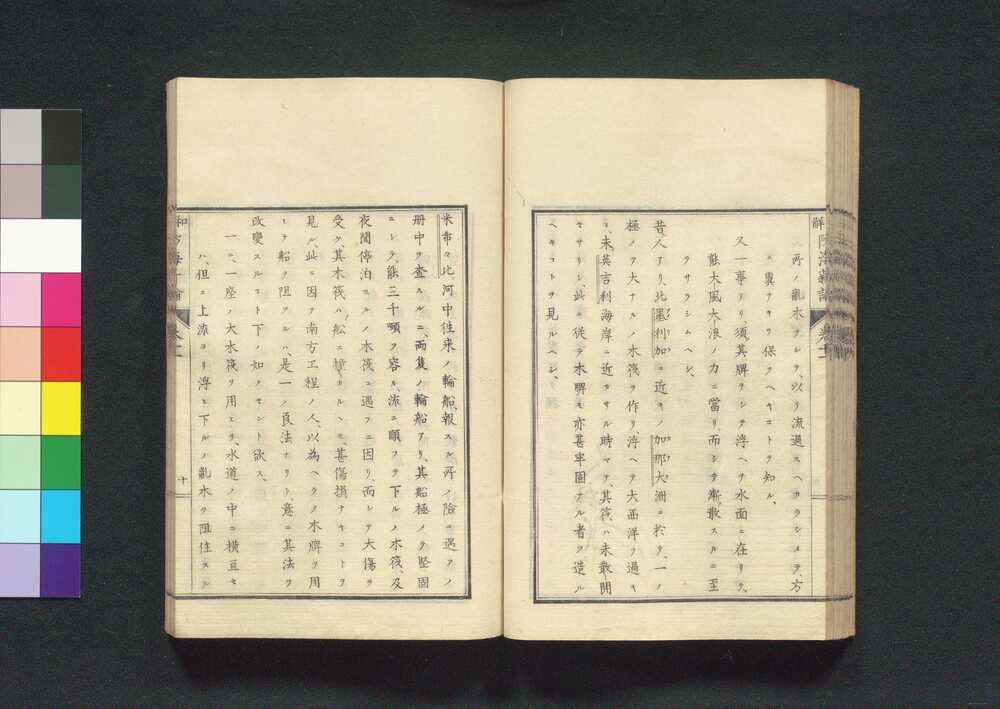 所ノ亂木ヲシテ、以テ流過スヘカラシメテ、方
ニ異ナキヲ保ツヘキコトヲ知ル、
又一事アリ、須其牌ヲシテ浮ヘテ水面ニ在リテ、
能大風大浪ノ力ニ當リ、而シテ漸散スルニ至
ラサラシムヘシ、
昔人アリ、北墨利加ニ近キノ加那大洲ニ於テ、一ノ
極メテ大ナルノ木筏ヲ作リ、浮ヘテ大西洋ヲ過キ
シニ、未英吉利海岸ニ近カサル時マテ、其筏ハ未散開
セサリシ、此ニ從テ木牌モ亦甚牢固アル者ヲ造ル
ヘキコトヲ見ルヘシ、
米希々比河中往来ノ輪船、報スル所ノ險ニ遇フノ
册中ヲ査スルニ、両隻ノ輪船アリ、其船極メテ堅固
ニシテ、能三千噸ヲ容ル、流ニ順フテ下ルノ木筏、及
夜間停泊スルノ木筏ニ遇フニ因リ、而シテ大傷ヲ
受ク、其木筏ハ船ニ撞カルヽモ、甚傷損ナキコトヲ
見ル、此ニ因テ南方工程ノ人、以為ヘラク木牌ヲ用
ヒテ船ヲ阻ツルハ、是一ノ良法ナリト、意ニ其法ヲ
改變スルコト下ノ如クセント欲ス、
一ニ、一座ノ大木筏ヲ用ヒテ、水道ノ中ニ横亘セ
ハ、但ニ上流ヨリ浮ヒ下ルノ亂木ヲ阻住スル
十